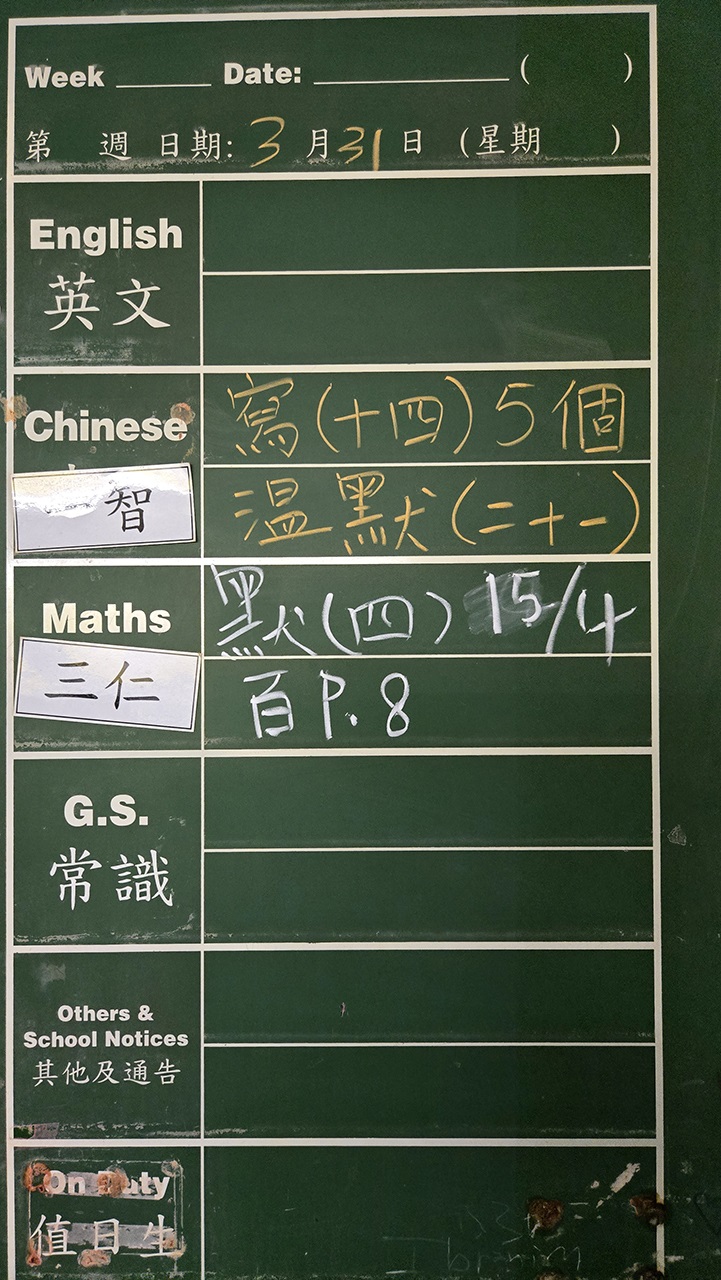 Week ______ Date: ____________ (      )
第 週 日期: 3 月 31 日 (星期      )
English
英文
Chinese
寫(十四)5個
智
温默(二十一)
Maths
默(四) 15/4
三仁
百 P. 8
G.S.
常識
Others &
School Notices
其他及通告
On Duty
值日生